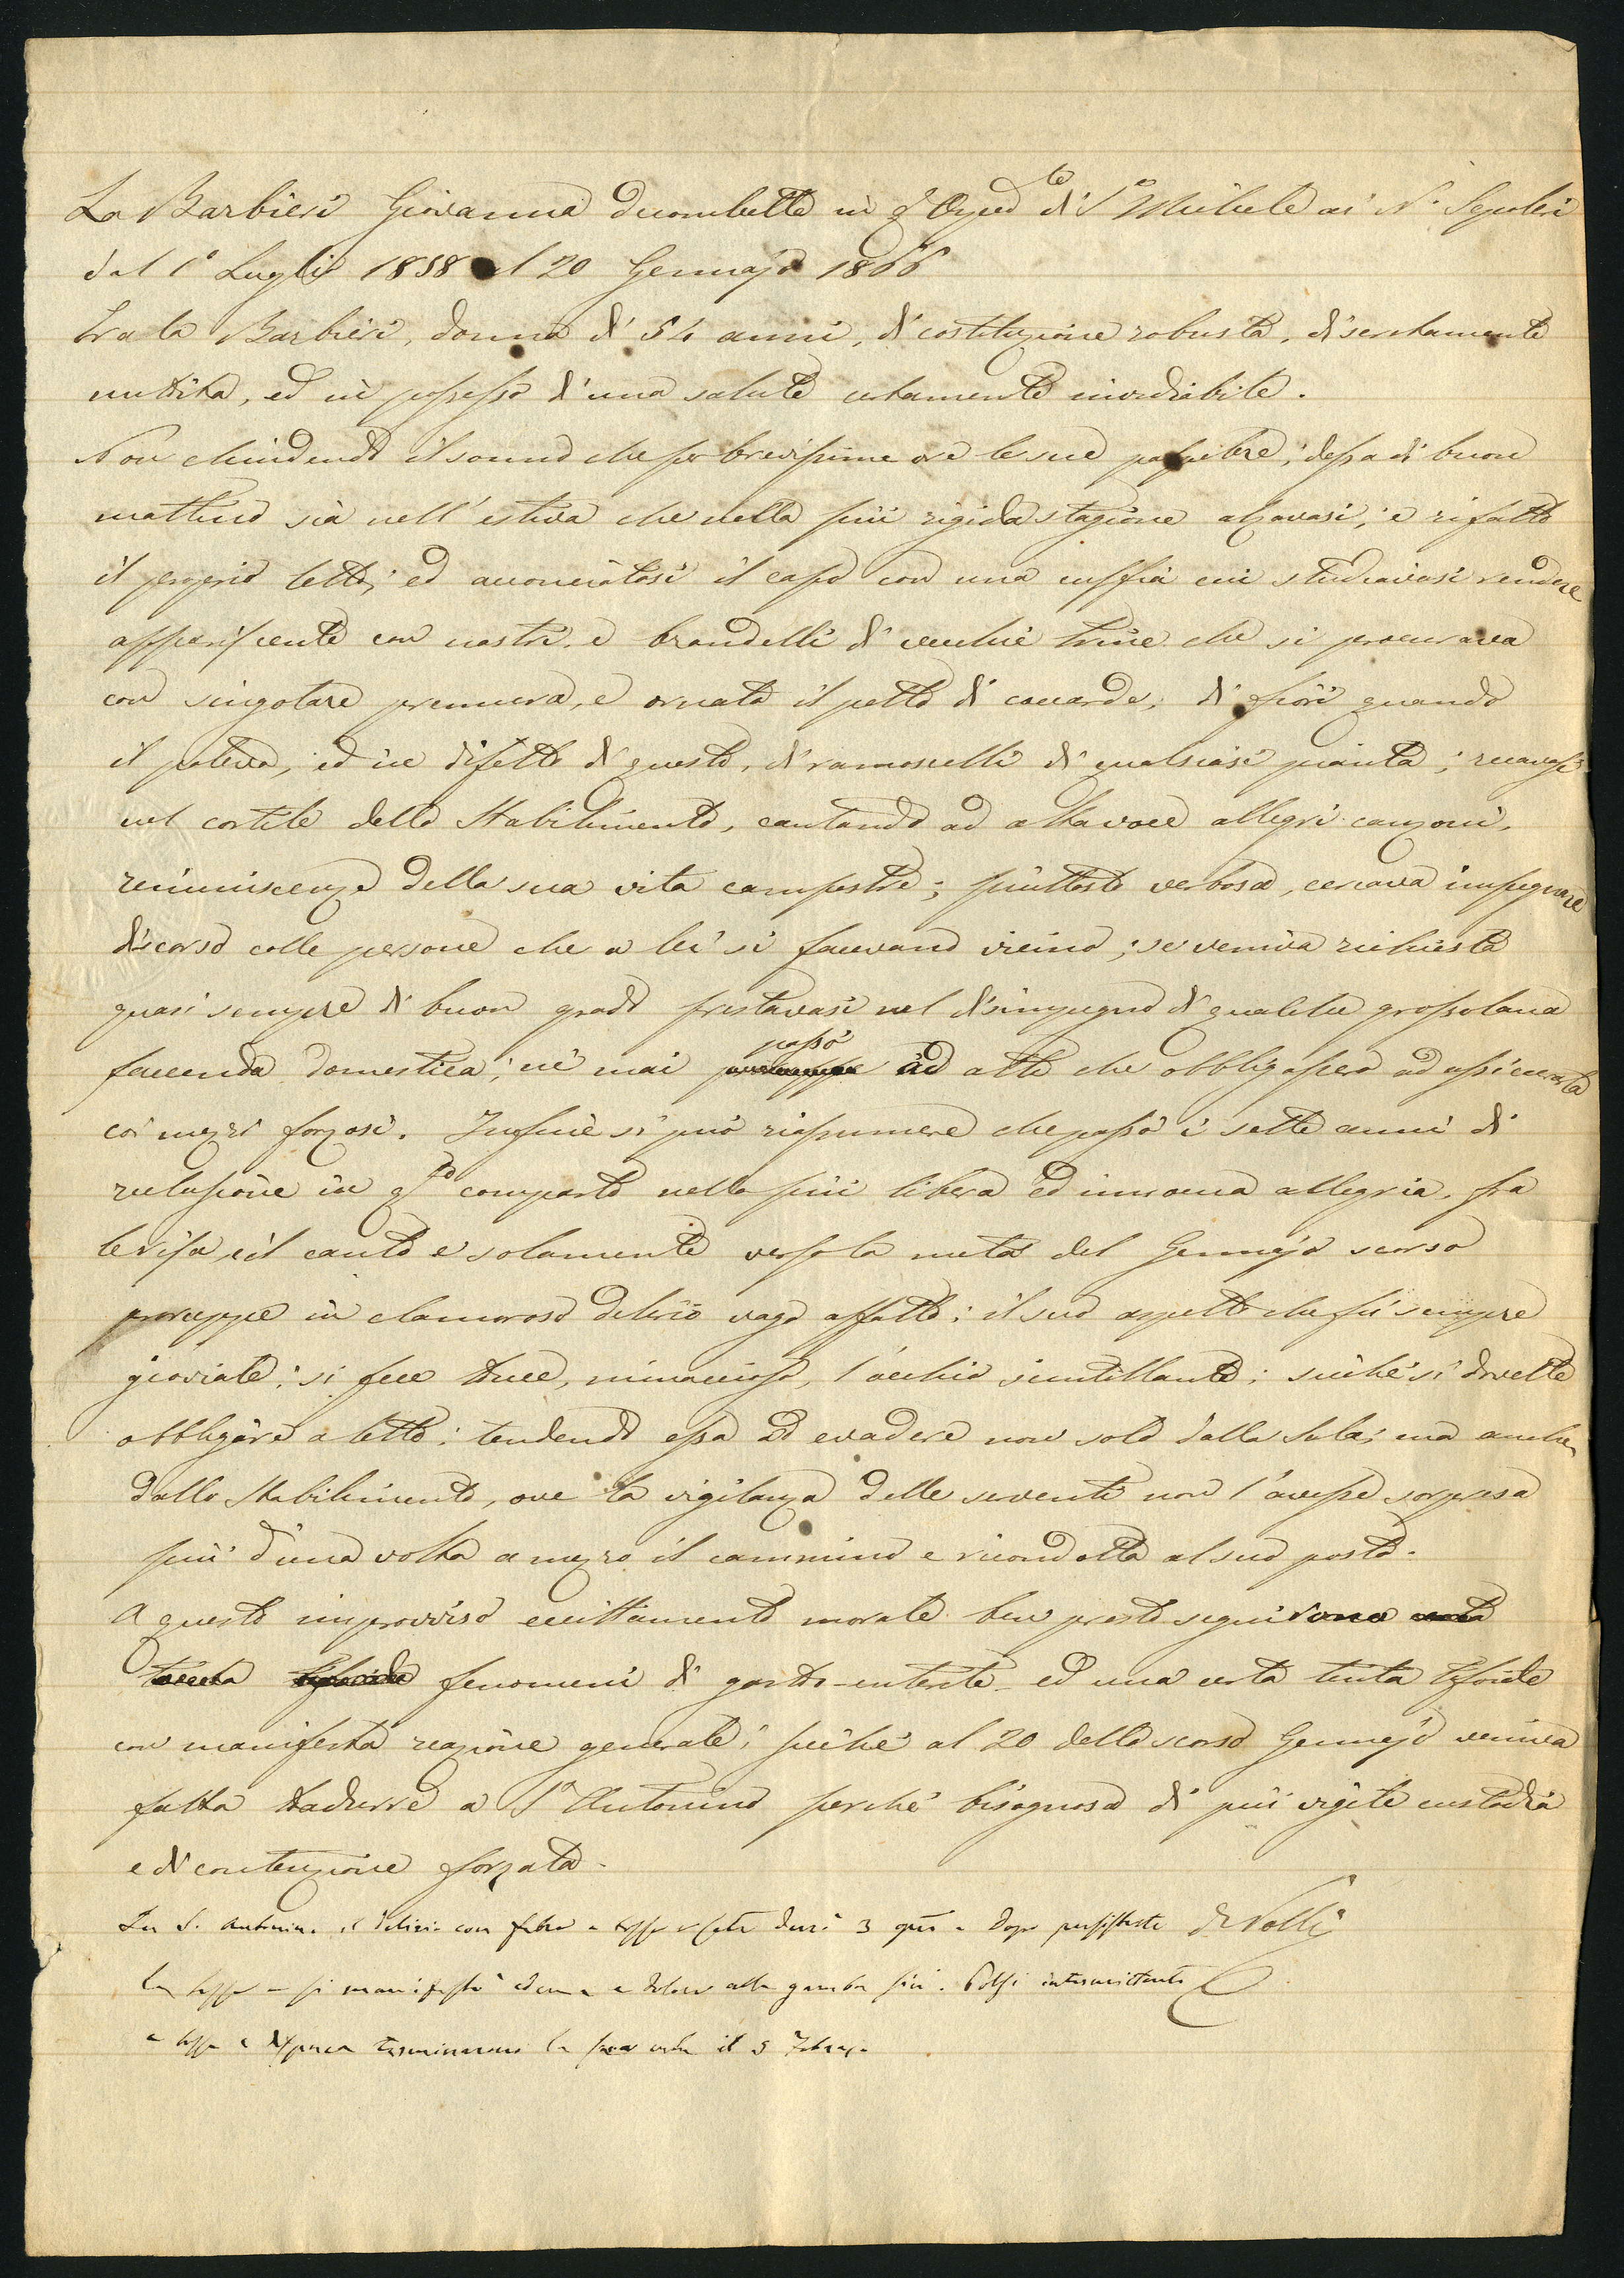 La Barbieri Giovanna decombette in q.to Osped.le di S. Michele ai N. Sepolcri
dal 1° Luglio 1858 al 20 Gennajo 1866
Era la Barbieri, donna di 54 anni, di costituzione robusta, discretamente
nutrita, ed in possesso d'una salute certamente invidiabile.
Non chiudendo il sonno che per brevissime ore le sue palpebre; dessa di buon
mattino sia nell'estiva che nella più rigida stagione alzavasi; e rifatto
il proprio letto; ed acconciatosi il capo con una cuffia cui studiavasi rendere
appariscente con nastri e brandelli di vecchie trine che si procurava
con singolare premura, e ornato il petto di coccarde, di fiori quando
il poteva, ed in difetto di questo, di ramoscelli di qualsiasi pianta; recavasi
nel cortile dello Stabilimento, cantando ad alta voce allegri canzoni,
reminiscenze della sua vita campestre; piuttosto verbosa, cercava impegnare
discorso colle persone che a lei si facevano vicino; se veniva richiesta
quasi sempre di buon grado prestavasi nel disimpegno di qualche grossolana
faccenda domestica; nè mai passò ad atti che obbligassero ad assicurarla
coi mezzi forzosi. Infine si può riassumere che passò i sette anni di
reclusione in q.to comparto nella più libera ed innocua allegria, fra
le risa, ed il canto e solamente verso la metà del Gennajo scorso
proruppe in clamoroso delirio vago affatto; il suo aspetto che fù sempre
gioviale; si fece truce, minaccioso, l'occhio scintillante; sicchè si dovette
obbligare a letto; tendendo essa ad evadere non solo dalla Sala; ma anche
dallo Stabilimento, ove la vigilanza delle serventi non l'avesse sorpresa
più d'una volta a mezzo il cammino e ricondotta al suo posto.
A questo improvviso eccittamento morale ben presto seguirono
fenomeni di gastro-enterite ed una certa tinta tifoide
con manifesta reazione generale; sicchè al 20 dello scorso Gennajo veniva
fatta tradurre a S. Antonino perchè bisognosa di più vigile custodia
e di contenzione forzata.
In S. Antonino il delirio con febre e tosse durò 3 e dopo persistette Dr Volli
la tosse e si manifestò edema e dolore alla gamba Polsi intermittenti
e tosse e dispnea terminarono la sua vita il 5 Febrajo